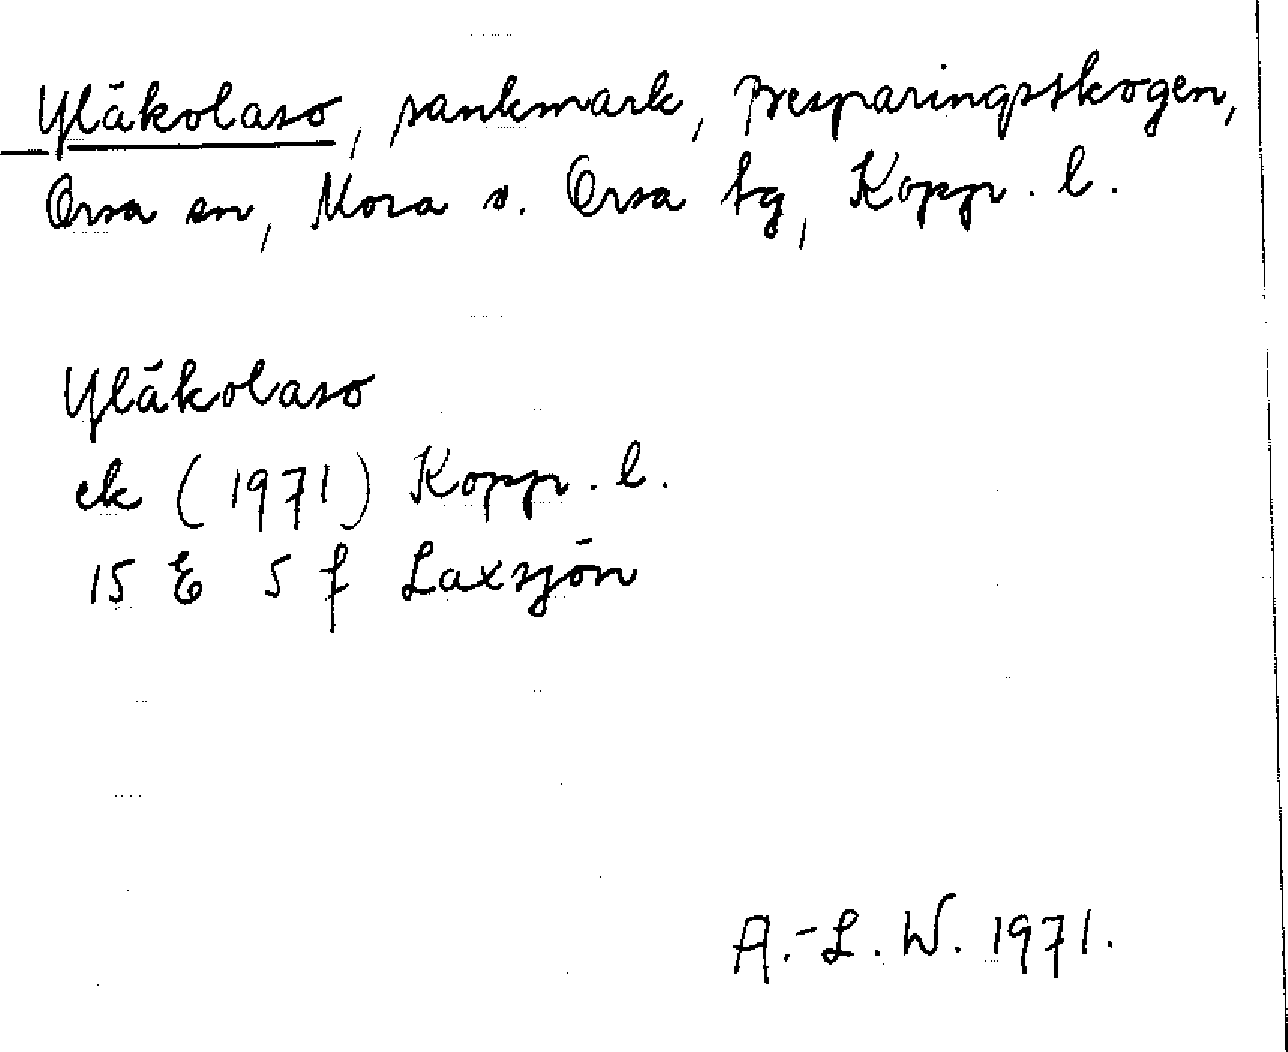 Yläkolaso, sankmark, Besparingsskogen,
Orsa sn, Mora o. Orsa tg, Kopp. l.
Yläkolaso
ek (1971) Kopp. l.
15 E 5 f Laxsjön
A.-L. W. 1971.